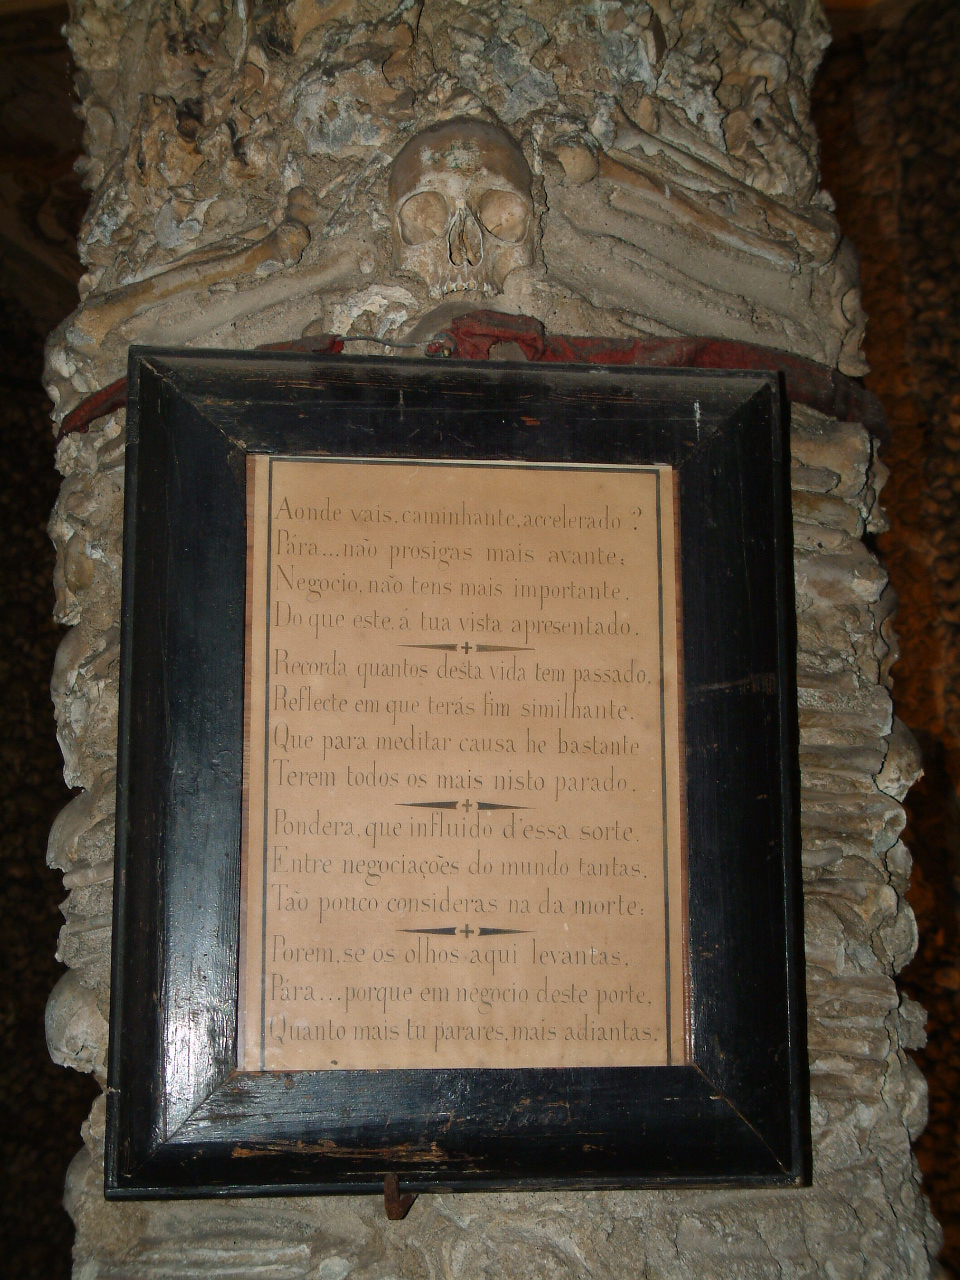 Aonde vais, caminhante, accelerado ?
Pára...não prosigas mais avante;
Negocio, não tens mais importante,
Do que este, á tua vista apresentado.
Recorda quantos desta vida tem passado,
Reflecte em que terás fim similhante,
Que para meditar causa he bastante
Terem todos os mais nisto parado.
Pondera, que influido d'essa sorte,
Entre negociações do mundo tantas,
Tão pouco consideras na da morte;
Porem, se os olhos aqui levantas,
Pára...porque em negocio deste porte,
Quanto mais tu parares, mais adiantas.